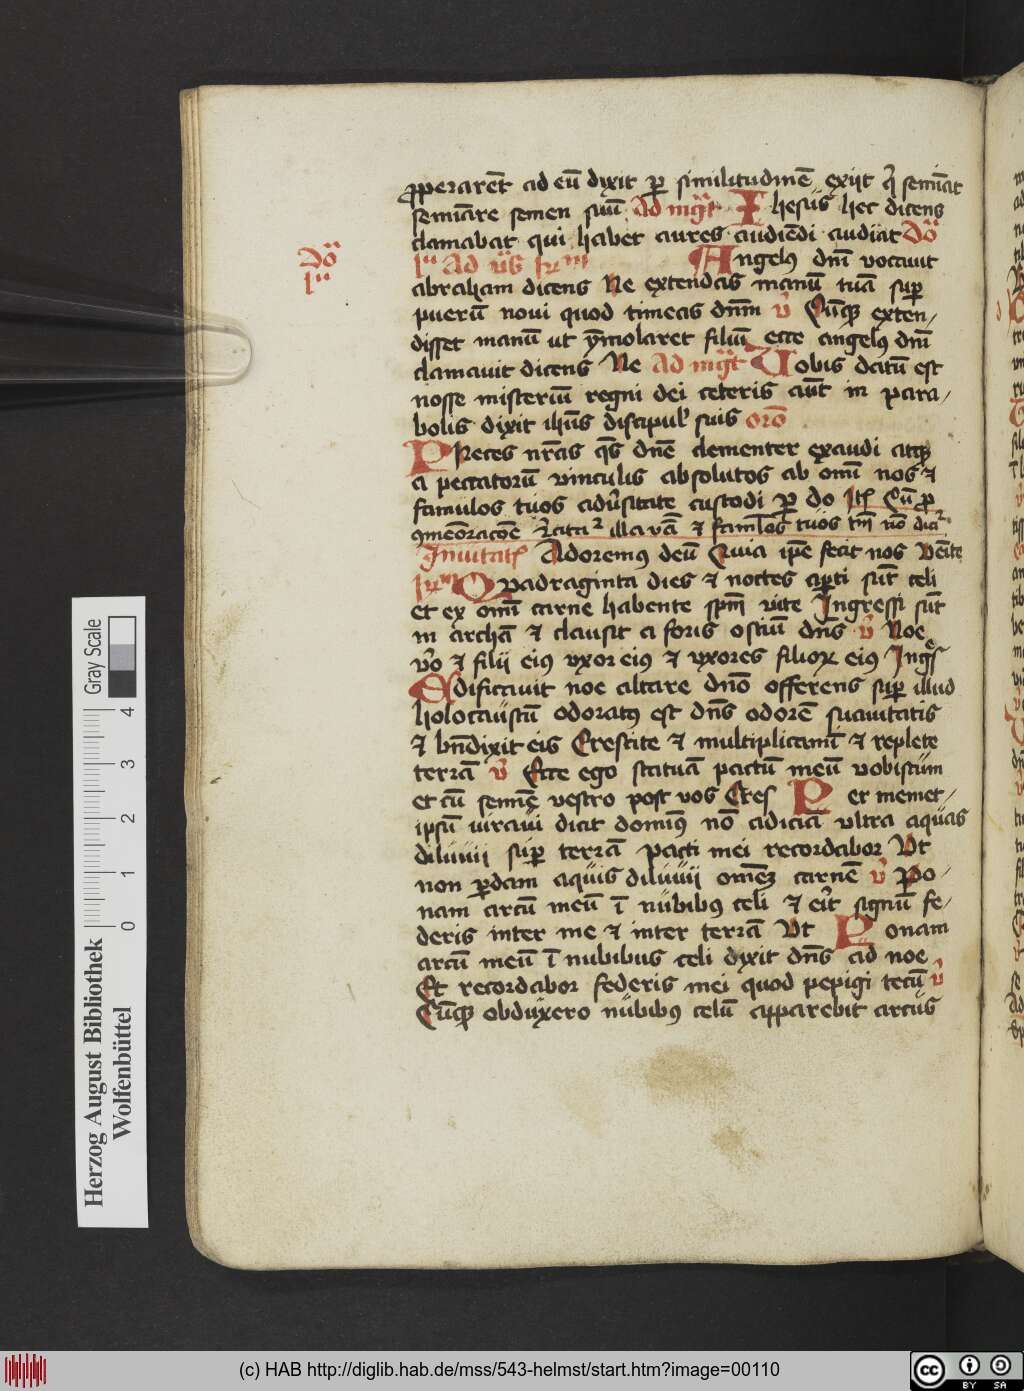 ꝓperarēt ad eū dixit ꝑ similitudinē exijt qͥ semīat
semīare semen suū Ad mgͣt Ihesus hec dicens
clamabat qui habet aures audiēdi audiat Doͣ
Doͣ
lͣ
lͣ Ad vs̄ hʳᵐ Angelꝰ dnī vocauit
abraham dicens Ne extendas manū tuā suꝑ
puerū noui quod timeas dnm̄ v̾ Cūqꝫ exten-
disset manū ut ymolaret filiū ecce angelꝰ dnī
clamauit dicens Ne Ad mgͣt Uobis datū est
nosse misteriū regni dei ceteris aūt in para-
bolis dixit ihūs discipul' suis orō
Preces nrās qs̄ dnē clementer exaudi atqꝫ
a peccatorū vinculis absolutos ab omī nos ⁊
famulos tuos adūsitate custodi ꝑ do Itē Cū ꝓ
illa vā ⁊ famlos tuos tm̄ nō
Inuitatͥ Adoremꝰ deū Quia ipē fecit nos Venite
hʳᵐ Quadraginta dies ⁊ noctes aꝑti sūt celi
et ex omī carne habente spm̄ vite Ingressi sūt
in archā ⁊ clausit a foris ostiū dns̄ v̾ Noe
v̾o ⁊ filij eiꝰ vxor eiꝰ ⁊ vxores filioꝝ eiꝰ Ingͤs
Edificauit noe altare dnō offerens suꝑ illud
holocaustū odoratꝰ est dns̄ odorē suauitatis
⁊ bn̄dixit eis Crescite ⁊ multiplicaminī ⁊ replete
terrā v̾ Ecce ego statuā pactū meū vobiscum
et cū semīe vestro post vos Cres Per memet-
ipsū iuraui dicit dominꝰ nō adiciā vltra aquas
diluuij suꝑ terrā pacti mei recordabor Vt
non ꝑdam aquis diluuij omēꝫ carnē v̾ Po-
nam arcū meū ī nubibꝰ celi ⁊ eīt signū fe-
deris inter me ⁊ inter terrā Vt Ponam
arcū meū ī nubibus celi dixit dns̄ ad noe
Et recordabor federis mei quod pepigi tecū v̾
Cūqꝫ obduxero nubibꝰ celū apparebit arcus
Herzog August Bibliothek
Wolfenbüttel
0 1 2 3 4
Gray Scale
(c) HAB http://diglib.hab.de/mss/543-helmst/start.htm?image=00110
cc BY SA